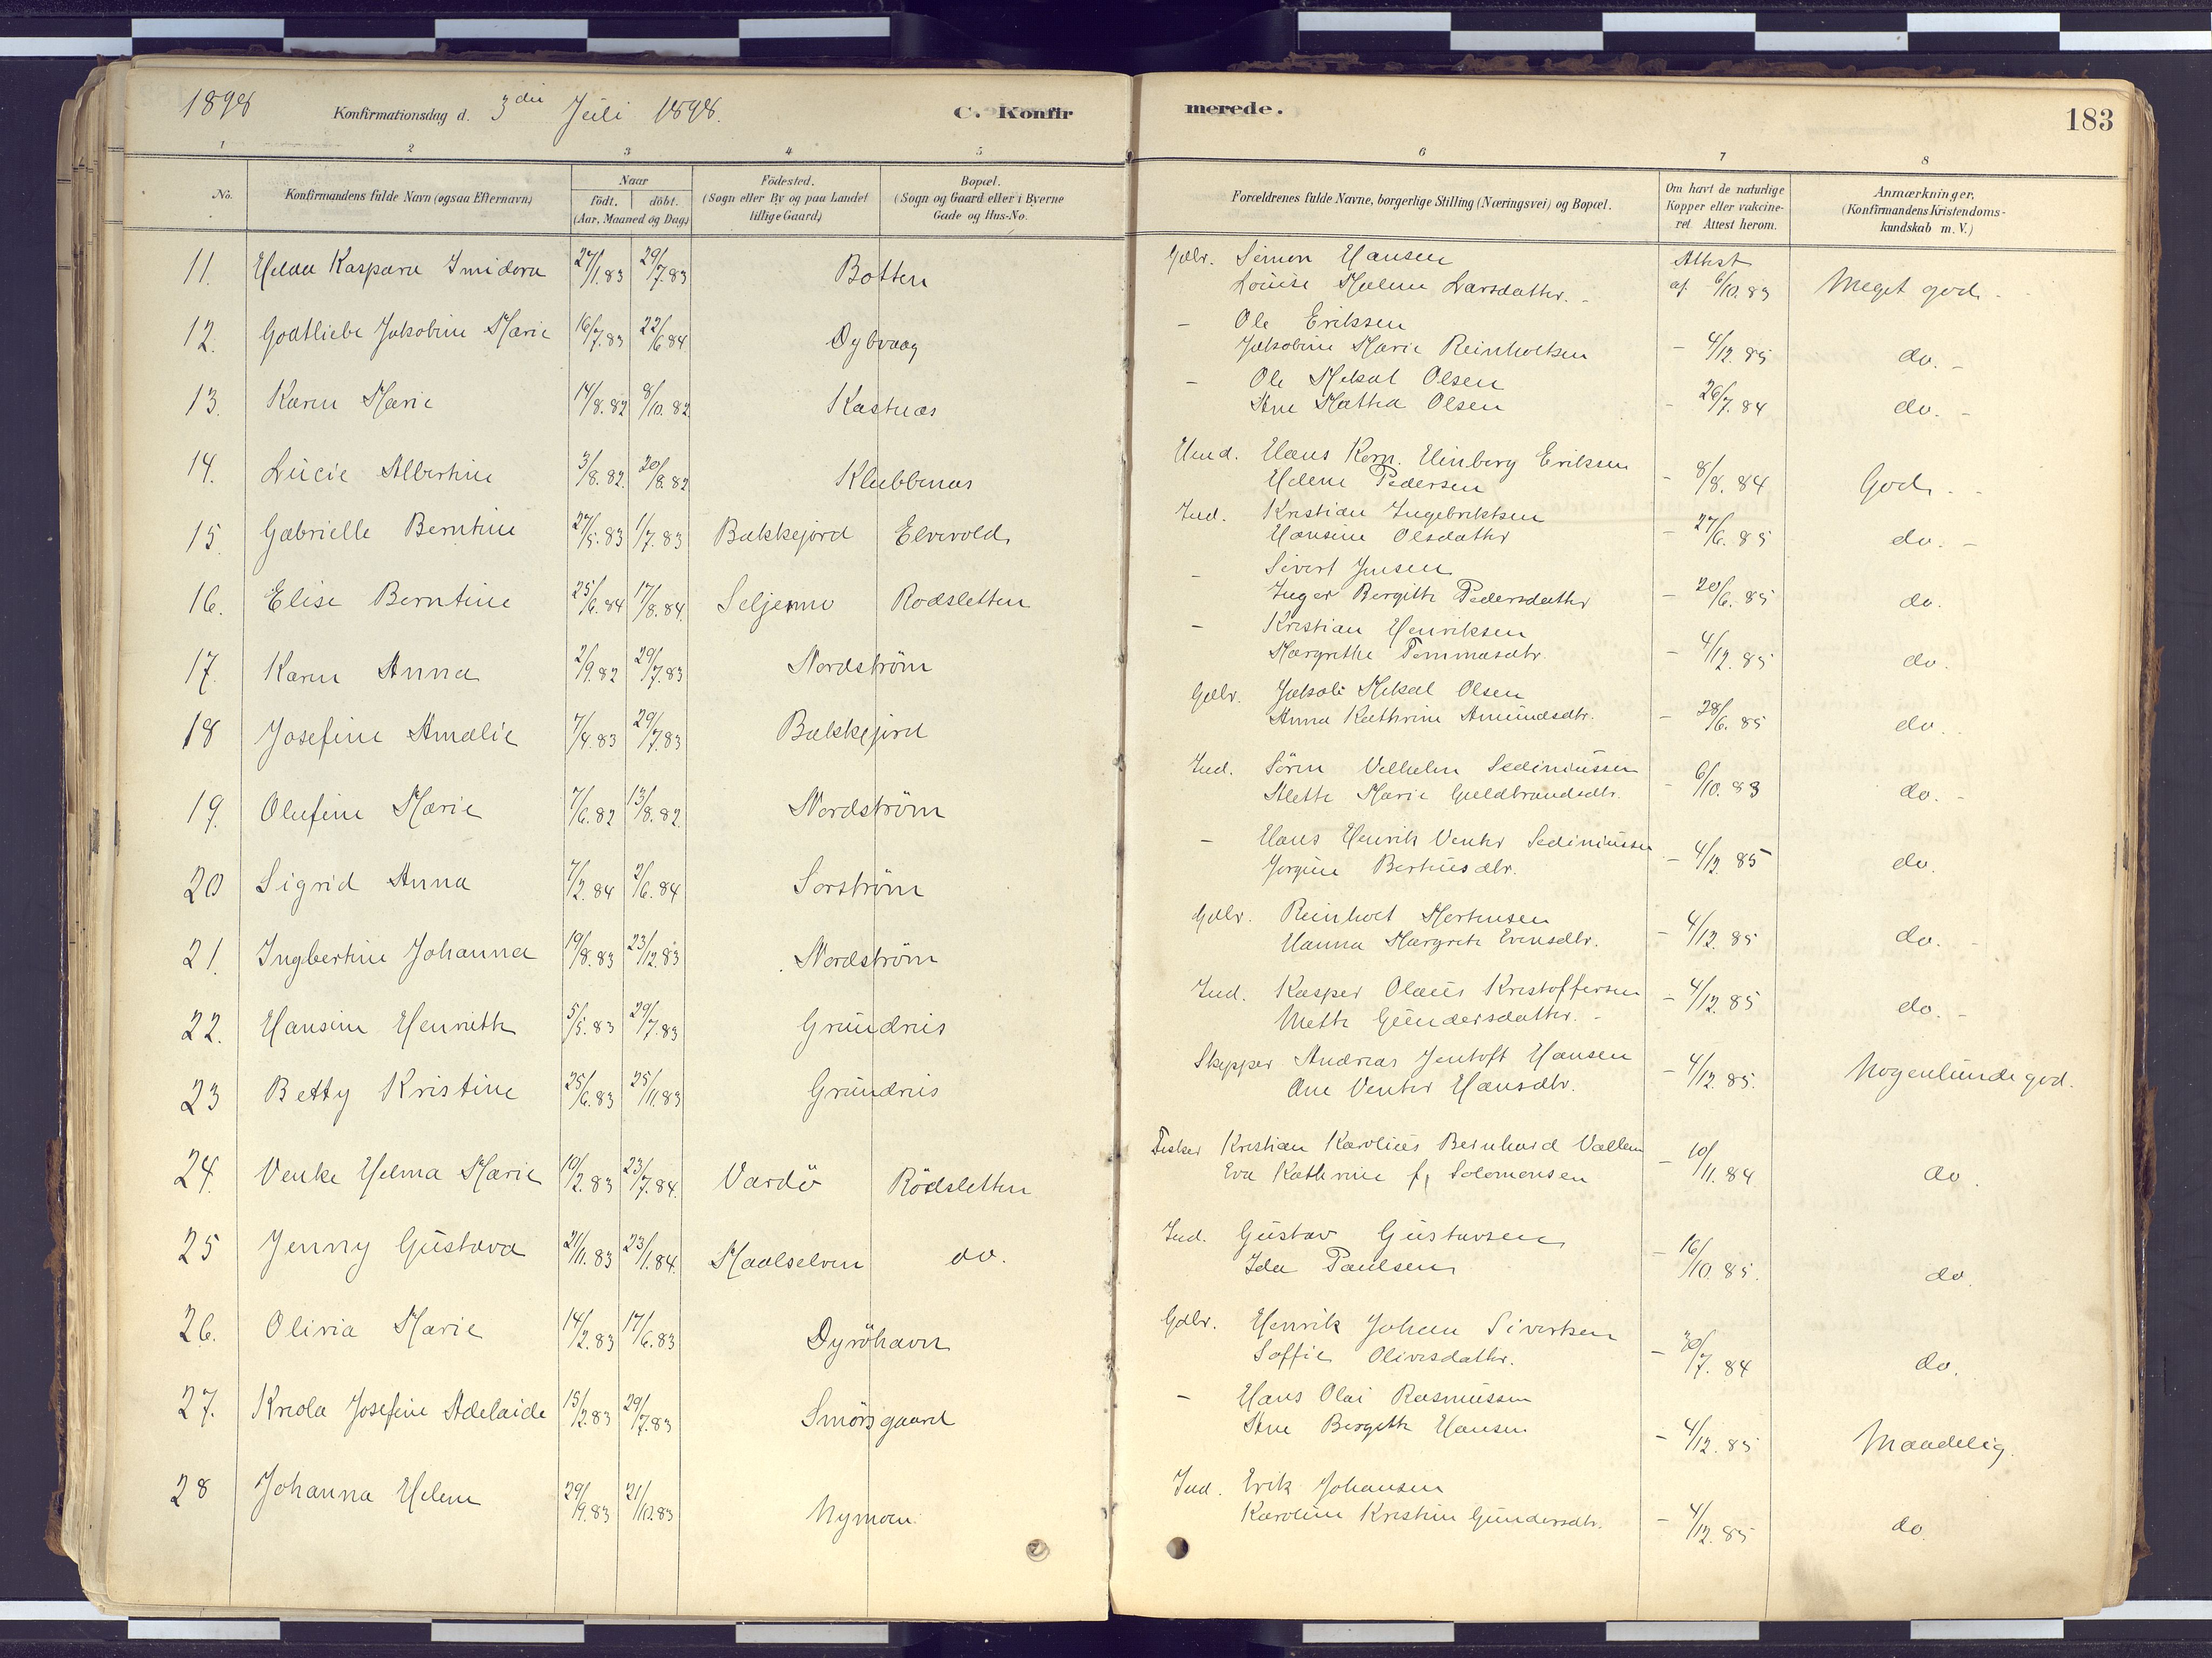 1898 Konfirmationsdag d. 3die Juli 1898. C. Konfirmerede. 183
1 2 3 4 5 6 7 8
No. Konfirmandens fulde Navn (ogsaa Efternavn) Naar födt. döbt. (Aar, Maaned og Dag.) Födested. (Sogn eller By og paa Landet tillige Gaard) Bopæl. (Sogn og Gaard eller i Byerne Gade og Hus-No. Forældrenes fulde Navne, borgerlige Stilling (Næringsvei) og Bopæl. Om havt de naturlige Kopper eller vakcineret. Attest herom. Anmærkninger, (Konfirmandens Kristendomskundskab m. V.)
11. Helda Kaspara Imidora 27/1.83 29/7.83 Botten Gdbr. Simon Hansen Attest
Louise Malene Larsdatter. af 6/10.83 Meget god.
12. Godtliebe Jakobine Marie 16/7.83 22/6.84. Dybvaag - Ole Eriksen
Jakobine Marie Reinholtsen - 4/12.85 do. -
13. Karen Marie 14/8.82 8/10.82 Kastnæs - Ole Mikal Olsen
Ane Mathea Olsen - 26/7.84 do. -
14. Lucie Albertine 3/8.82. 20/8.82 Klubbenæs Und. Hans Korn. Elinberg Eriksen
Helene Pedersen - 8/8.84 God. -
15. Gabrielle Berntine 27/5.83 1/7.83 Bakkejord Elvevold Ind. Kristian Ingebriktsen
Hansine Olsdatter - 27/6.85 do. -
16. Elise Berntine 25/6.84 17/8.84. Seljemo Rodsletten - Sivert Jensen
Inger Bergitte Pedersdatter - 20/6.85 do.
17. Karen Anna 2/9.82 29/7.83 Nordström - Kristian Henriksen
Margrethe Tommasdtr - 4/12.85 do.
18 Josefine Amalie 7/4.83 29/7.83 Bakkejord Gdbr. Jakob Mikal Olsen
Anna Kathrine Amundsdtr. - 28/6.85 do.
19. Olufine Marie 7/6.82 13/8.82. Nordström Ind. Sören Velhelm Sediniussen
Alette Marie Guldbrandsdtr. - 6/10.83 do. -
20 Sigrid Anna 7/2.84 2/6.84 Sorström - Hans Henrik Venter Sediniussen
Jorgine Berthusdtr. - 4/12.85 do.
21. Ingbertine Johanna 19/8.83 23/12.83 Nordström Gdbr. Reinholt Mortensen
Hanna Margrete Evensdtr. - 4/12.85 do. -
22. Hansine Henriette 5/5.83 29/7.83 Grundreis Ind. Kasper Olaus Kristoffersen - 4/12.85
Mette Gundersdatter. - do. -
23 Betty Kristine 25/6.83 25/11.83 Grundreis Skipper Andreas Jentoft Hansen
Ane Venter Hansdtr. - 4/12.85. Nogenlunde god.
24. Venke Helma Marie 19/2.83 23/7.84. Vardö Rödsletten Fisker Kristian Karolius Bernhard Vallem
Eva Kathrine f. Solomonsen - 10/11.84 do.
25 Jenny Gustava 21/11.83 23/1.84. Maalselven do. Ind. Gustav Gustavsen
Ida Paulsen - 16/10.85. do.
26. Olivia Marie 14/2.83 17/6.83 Dyröhavn Gdbr. Henrik Johan Sivertsen
Soffie Oliversdatter. - 30/7.84 do.
27. Kreola Josefine Adelaide 15/2.83 29/7.83 Smörsgaard - Hans Olai Rasmussen
Ane Bergitte Hansen - 4/12.85 Maadelig.
28 Johanna Helene 29/9.83 21/10.83 Nymoen Ind. Erik Johansen
Karoline Kristine Gundersdtr. - 4/12.85 do.